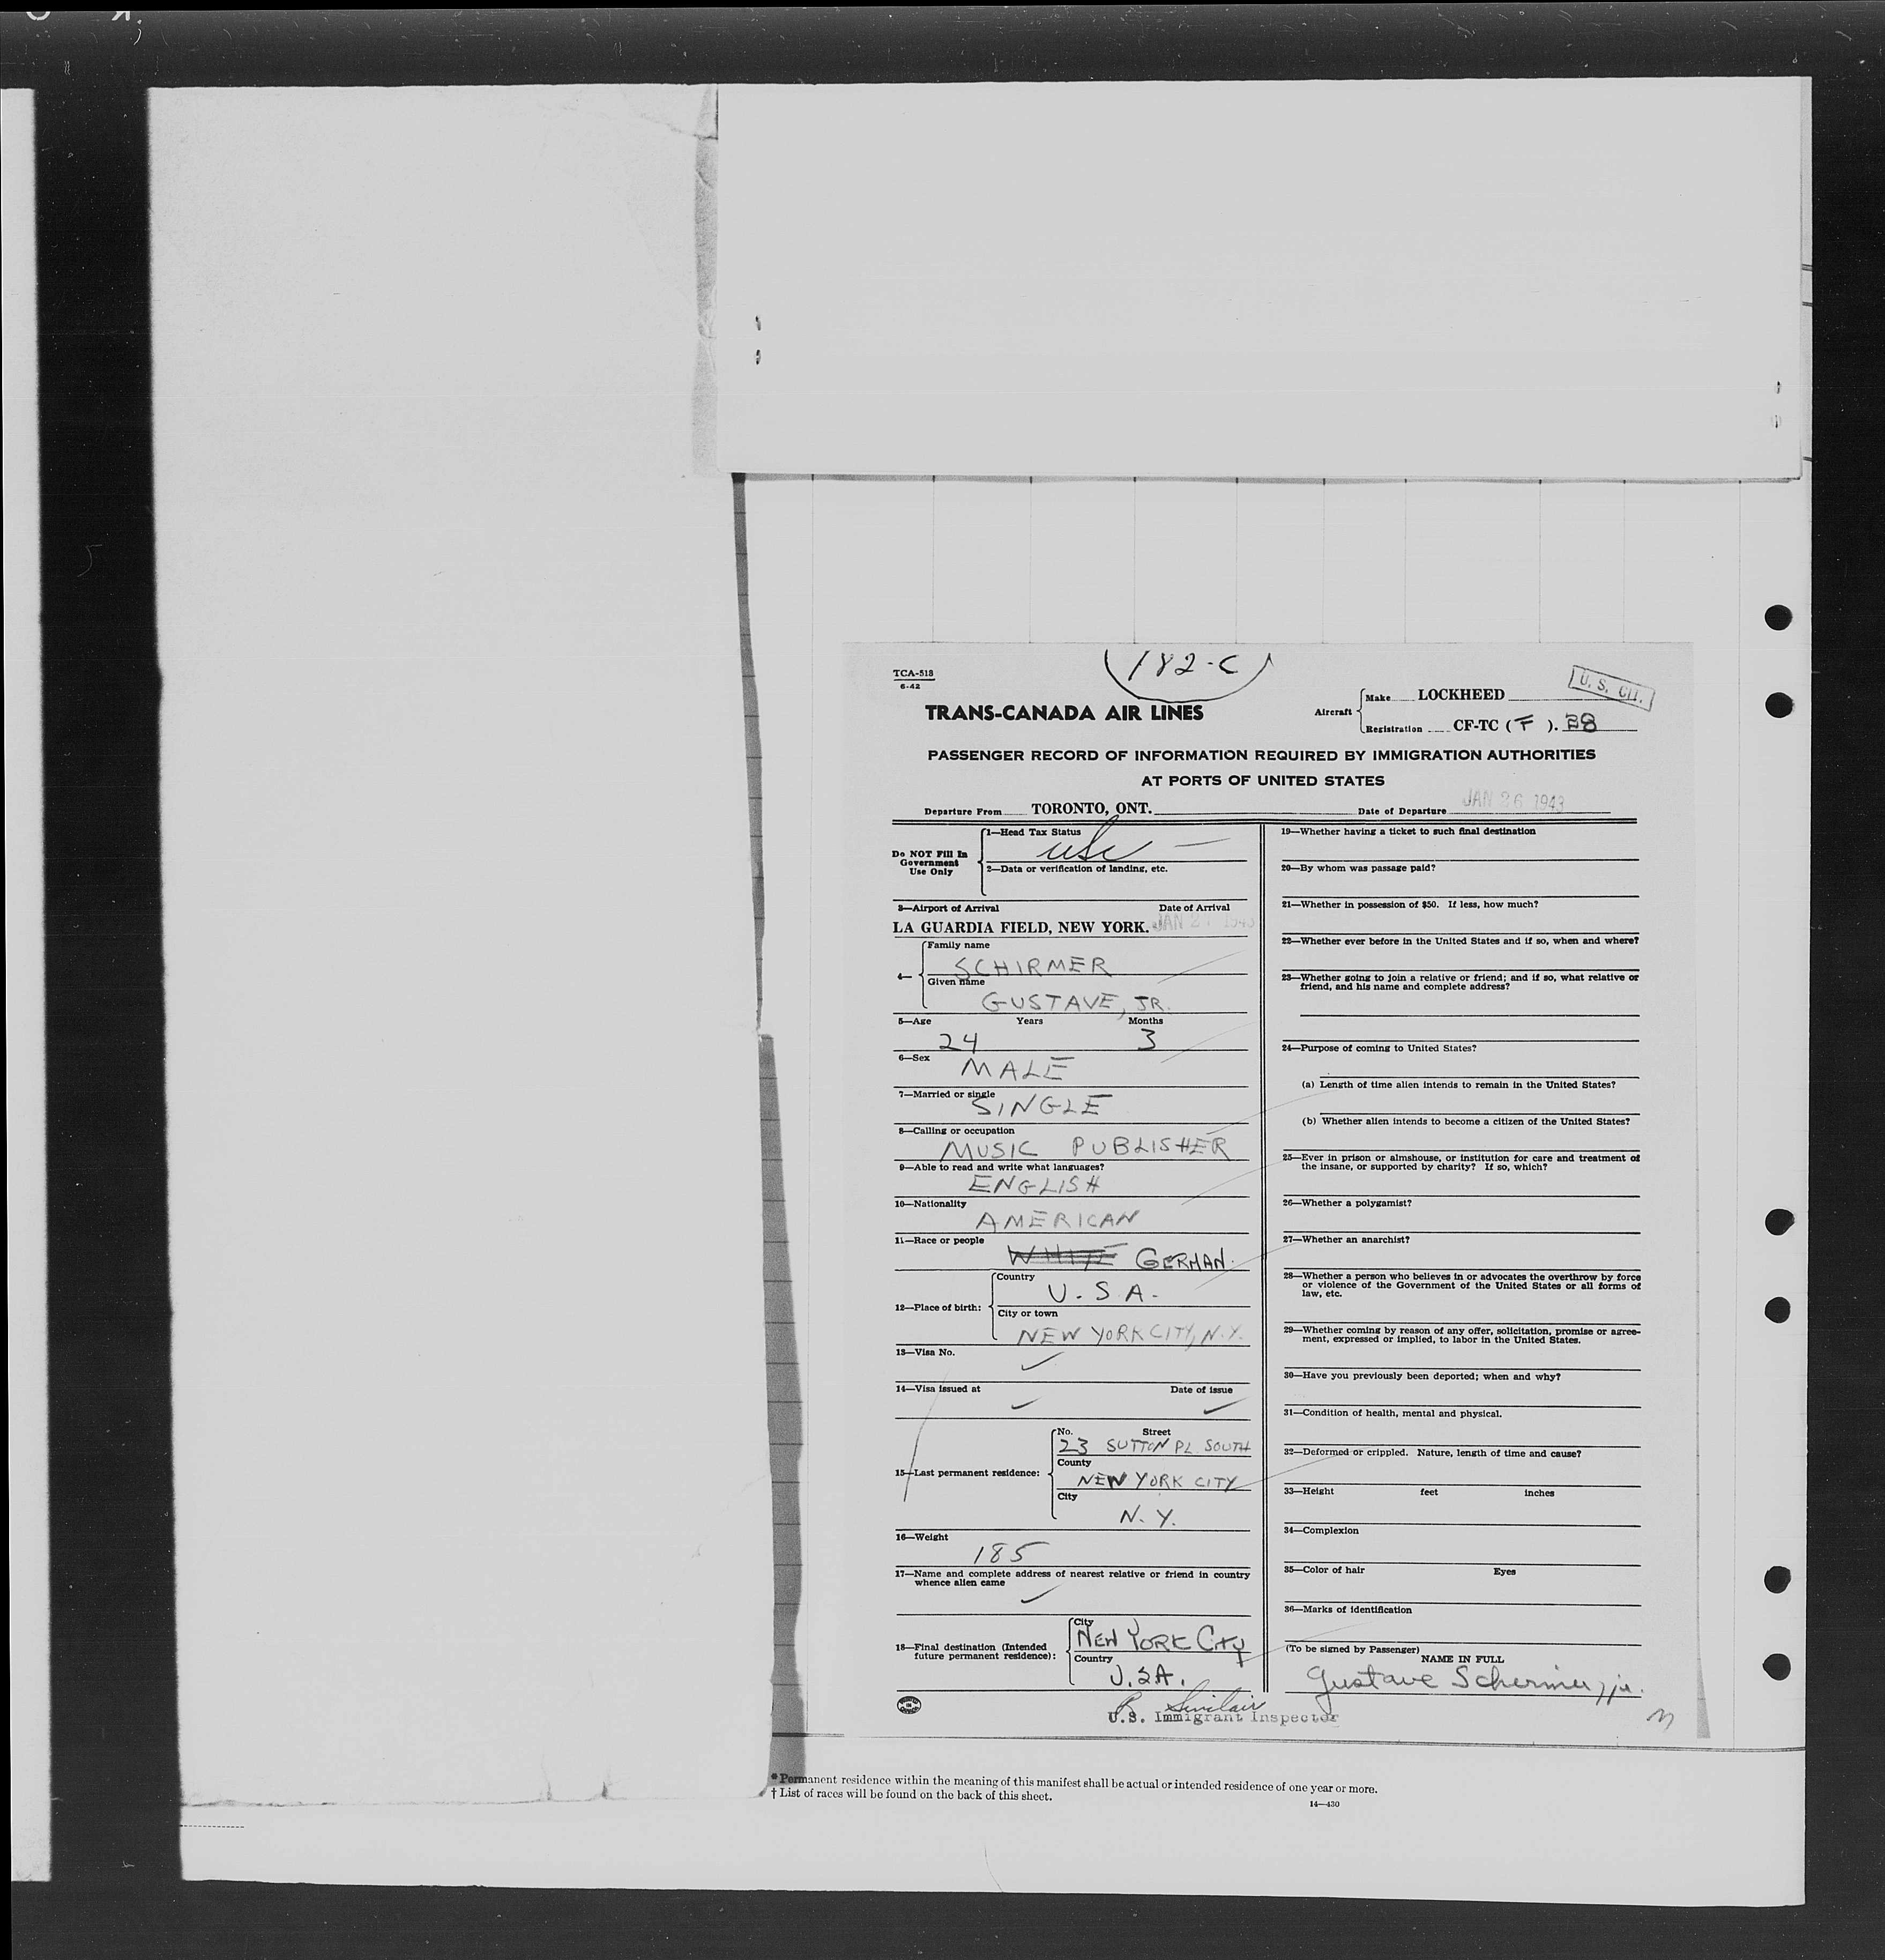 182-C
TCA-518
6-42
U. S. CIT.
TRANS-CANADA AIR LINES
Aircraft
Make LOCKHEED
Registration CF-TC ( F ). 38
PASSENGER RECORD OF INFORMATION REQUIRED BY IMMIGRATION AUTHORITIES
AT PORTS OF UNITED STATES
Departure From TORONTO, ONT. Date of Departure JAN 26 1943
Do NOT Fill In
Government
Use Only
1—Head Tax Status
usc
2—Data or verification of landing, etc.
3—Airport of Arrival Date of Arrival
LA GUARDIA FIELD, NEW YORK. JAN 27 1943
4—
Family name
SCHIRMER
Given name
GUSTAVE, JR.
5—Age Years Months
24 3
6—Sex
MALE
7—Married or single
SINGLE
8—Calling or occupation
MUSIC PUBLISHER
9—Able to read and write what languages?
ENGLISH
10—Nationality
AMERICAN
11—Race or people
WHITE GERMAN.
12—Place of birth:
Country
U. S. A.
City or town
NEW YORK CITY, N.Y.
13—Visa No.
14—Visa issued at Date of issue
15—Last permanent residence:
No. Street
23 SUTTON PL. SOUTH
County
NEW YORK CITY
City
N. Y.
16—Weight
185
17—Name and complete address of nearest relative or friend in country
whence alien came
18—Final destination (Intended
future permanent residence):
City
NEW YORK CITY
Country
U.S.A.
19—Whether having a ticket to such final destination
20—By whom was passage paid?
21—Whether in possession of $50. If less, how much?
22—Whether ever before in the United States and if so, when and where?
23—Whether going to join a relative or friend; and if so, what relative or
friend, and his name and complete address?
24—Purpose of coming to United States?
(a) Length of time alien intends to remain in the United States?
(b) Whether alien intends to become a citizen of the United States?
25—Ever in prison or almshouse, or institution for care and treatment of
the insane, or supported by charity? If so, which?
26—Whether a polygamist?
27—Whether an anarchist?
28—Whether a person who believes in or advocates the overthrow by force
or violence of the Government of the United States or all forms of
law, etc.
29—Whether coming by reason of any offer, solicitation, promise or agree-
ment, expressed or implied, to labor in the United States.
30—Have you previously been deported; when and why?
31—Condition of health, mental and physical.
32—Deformed or crippled. Nature, length of time and cause?
33—Height feet inches
34—Complexion
35—Color of hair Eyes
36—Marks of identification
(To be signed by Passenger)
NAME IN FULL
Gustave Schirmer, jr.
R. Sinclair
U.S. Immigrant Inspector
* Permanent residence within the meaning of this manifest shall be actual or intended residence of one year or more.
† List of races will be found on the back of this sheet.
14—430